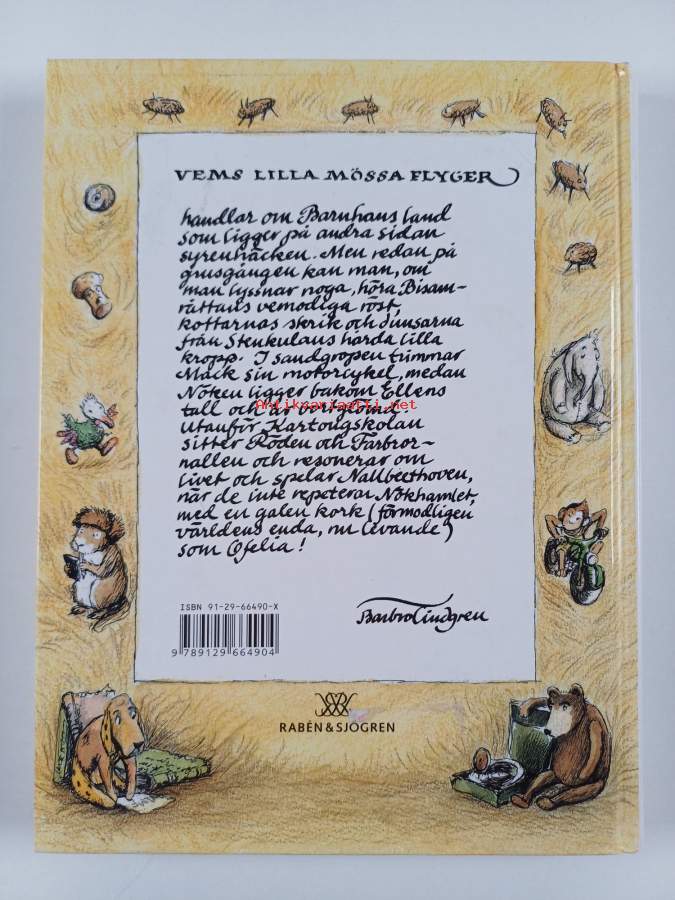 VEMS LILLA MÖSSA FLYGER
handlar om Barnhans land
som ligger på andra sidan
syrenhäcken. Men redan på
grusgången kan man, om
man lyssnar noga, höra Bisam-
råttans vemodiga röst,
kottarnas skrik och dunsarna
från Stenkulans hårda lilla
kropp. I sandgropen trimmar
Mack sin motorcykel, medan
Nöken ligger bakom Ellens
tall och är bortglömd.
Antikvariaatti.net
Utanför Kartongskolan
sitter Röden och Farbror-
nallen och resonerar om
livet och spelar Nallbeethoven,
när de inte repeterar Nökhamlet,
med en galen kork (förmodligen
världens enda, nu levande)
som Ofelia!
ISBN 91-29-66490-X
9 789129 664904
Barbro Lindgren
RABÉN & SJÖGREN